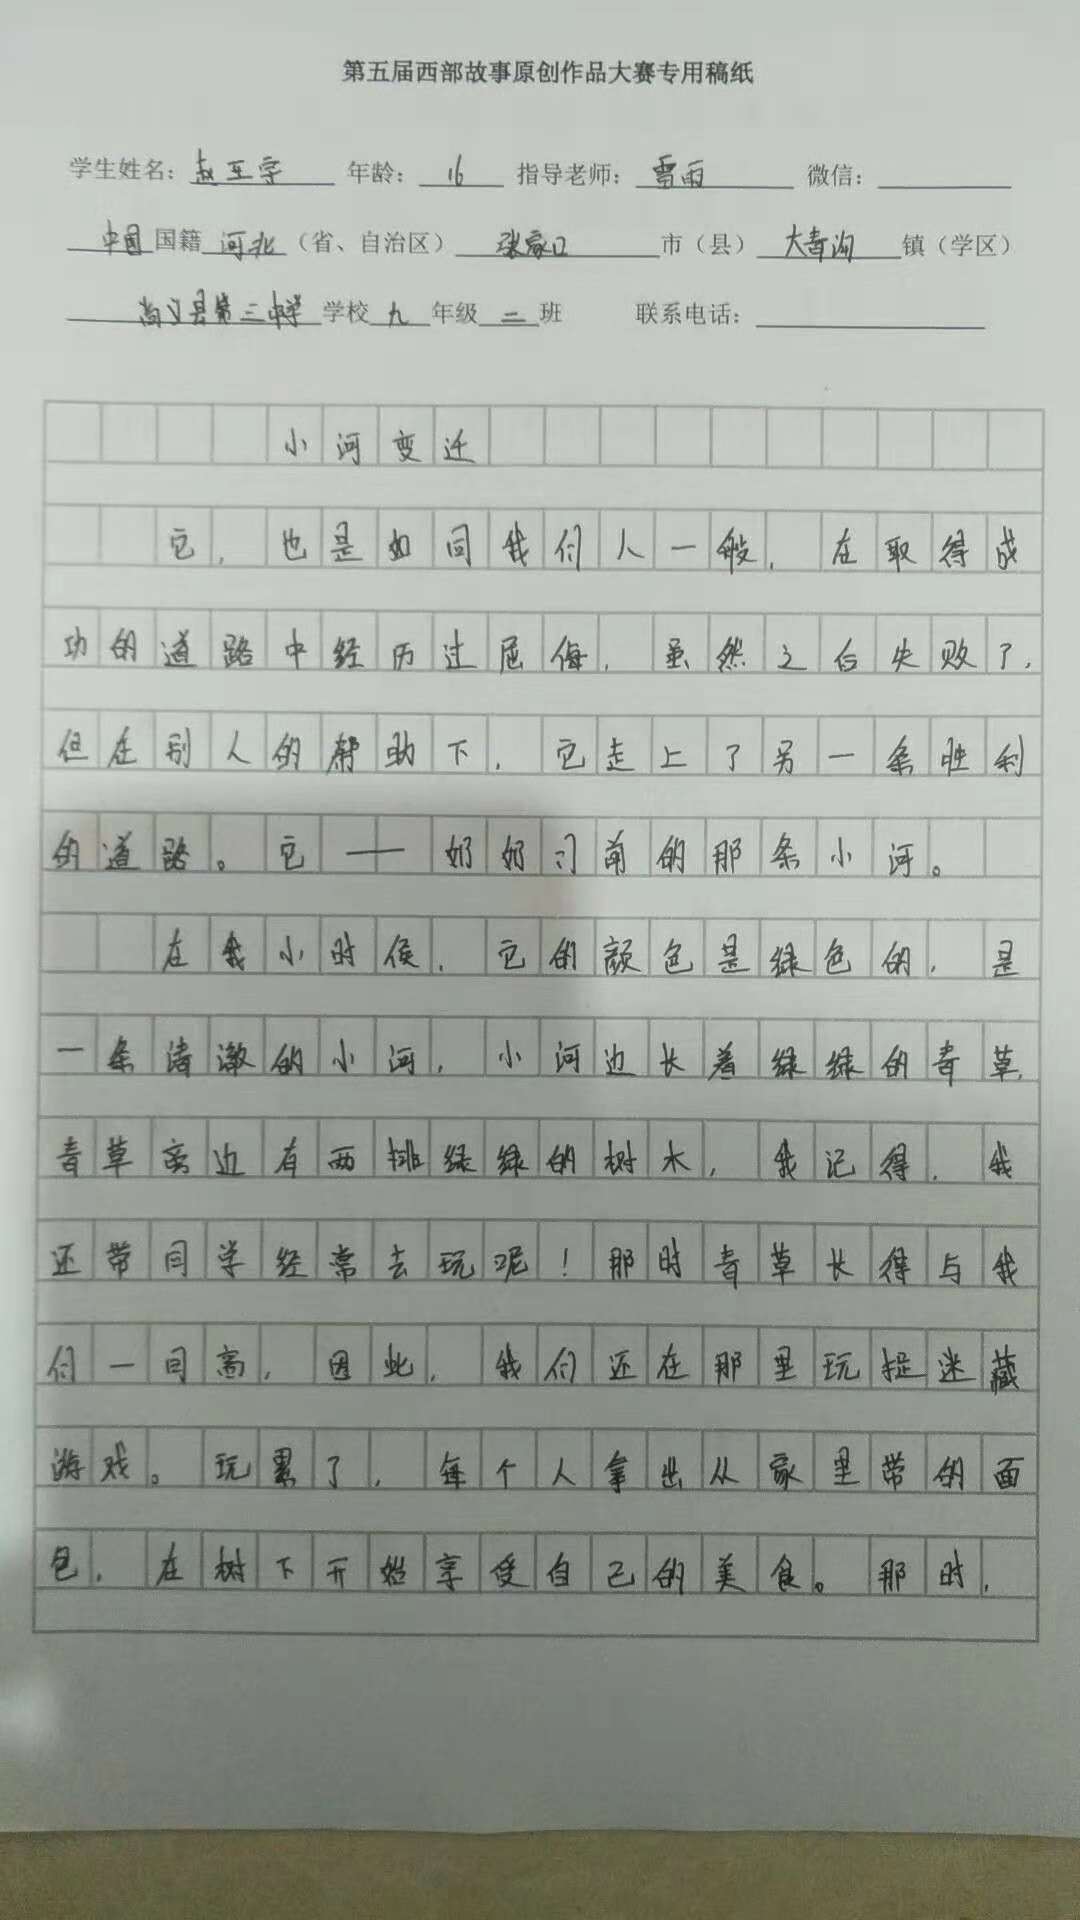 第五届西部故事原创作品大赛专用稿纸
学生姓名：赵玉宇 年龄：16 指导老师：雷雨 微信：
中国国籍 河北（省、自治区） 张家口 市（县） 大青沟 镇（学区）
尚义县第三中学 学校 九 年级 二 班 联系电话：
小河变迁
它，也是如同我们人一般，在取得成
功的道路中经历过屈侮，虽然之后失败了，
但在别人的帮助下，它走上了另一条胜利
的道路。它——奶奶门前的那条小河。
在我小时候，它的颜色是绿色的，是
一条清澈的小河，小河边长着绿绿的青草，
青草旁边有两排绿绿的树木，我记得，我
还带同学经常去玩呢！那时青草长得与我
们一同高，因此，我们还在那里玩捉迷藏
游戏。玩累了，每个人拿出从家里带的面
包，在树下开始享受自己的美食。那时，